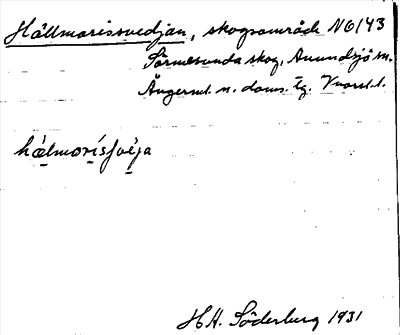 Hällmorissvedjan, skogsområde N6/43
Sörmesunda skog, Anundsjö sn.
Ångerml. n. doms. tg. Vnorrl. l.
hálmorísfvéja
H.H. Söderberg 1931